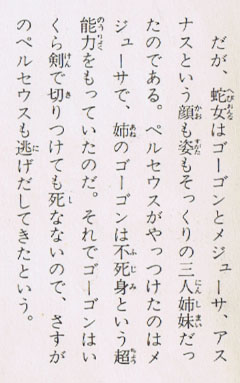 だが、蛇女はゴーゴンとメジューサ、アス
ナスという顔も姿もそっくりの三人姉妹だっ
たのである。ペルセウスがやっつけたのはメ
ジューサで、姉のゴーゴンは不死身という超
能力をもっていたのだ。それでゴーゴンはい
くら剣で切りつけても死なないので、さすが
のペルセウスも逃げだしてきたという。